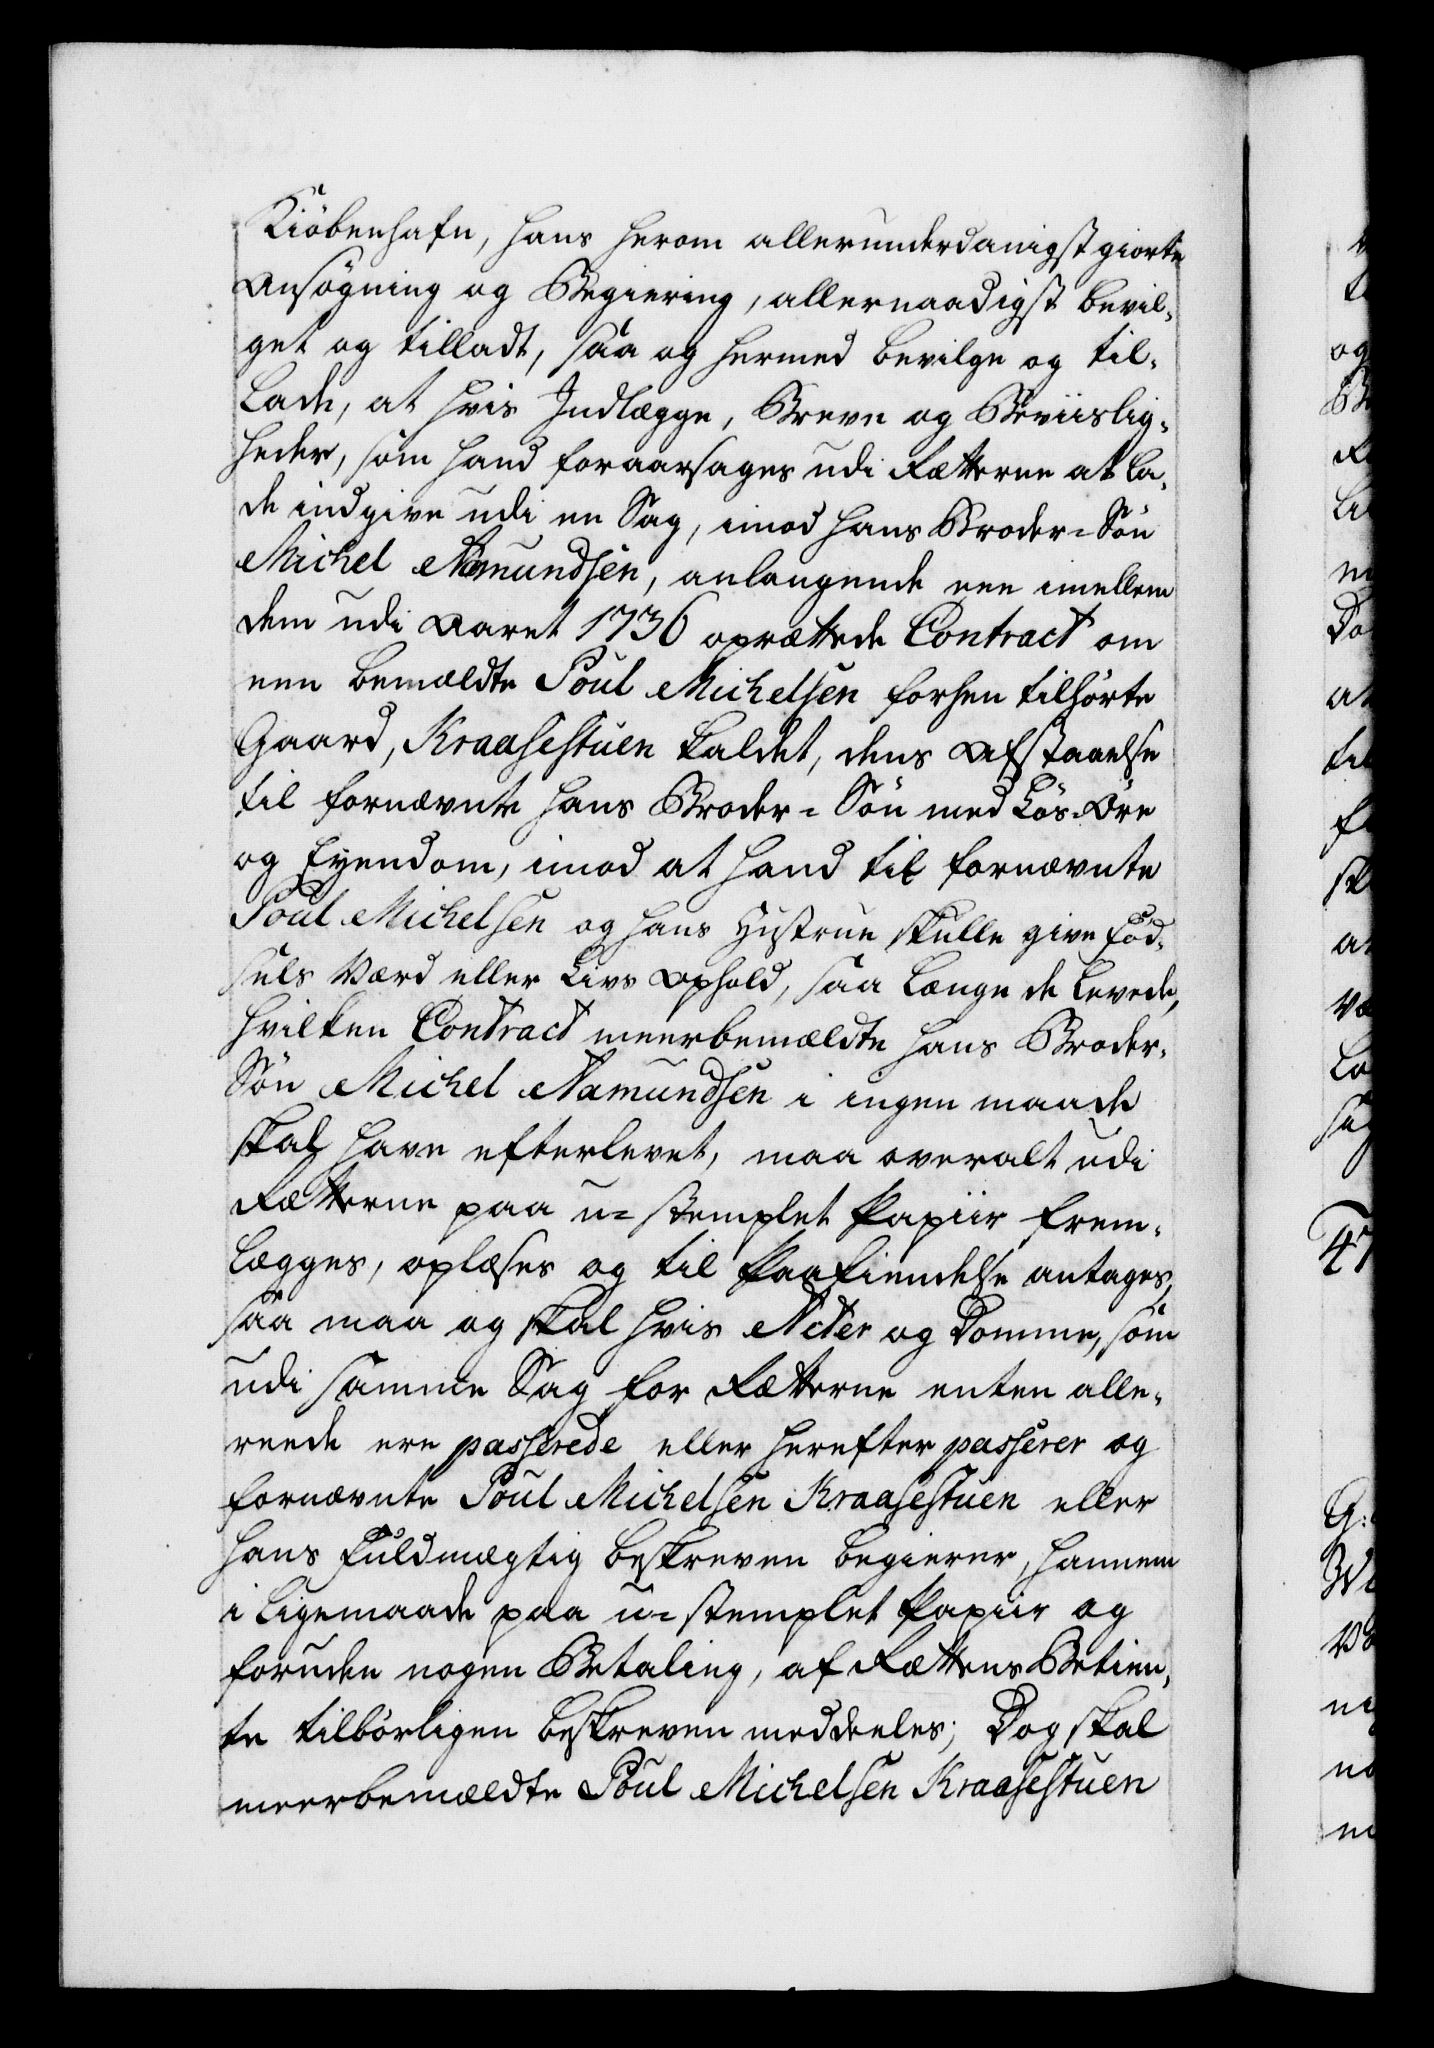 Kiöbenhafn, hans herom allerunderdanigst giorte
Ansögning og Begiering, allernaadigst bevil-
get og tilladt, saa og hermed bevilge og til-
lade, at hvis Indlægge, Breve og Beviislig-
heder, som hand foraarsages udi Rætterne at la-
de indgive udi en Sag, imod hans Broder-Sön
Michel Aamundsen, anlangende een imellem
dem udi Aaret 1736 oprættede Contract om
een bemældte Poul Michelsen forhen tilhörte
Gaard, Kraasestuen kaldet, dens Afstaaelse
til fornævnte hans Broder-Sön med Lös-Öre
og Eyendom, imod at hand til fornævnte
Poul Michelsen og hans Hustrue skulle give Föd-
sels Værd eller Livs Ophold, saa længe de levede,
hvilken Contract meerbemældte hans Broder-
Sön Michel Aamundsen i ingen maade
skal have efterlevet, maa overalt udi
Rætterne paa u-stemplet Papiir frem-
lægges, oplæses og til Paakiendelse antages,
saa maa og skal hvis Acter og Domme, som
udi samme Sag for Rætterne enten alle-
reede ere passerede eller herefter passerer og
fornævnte Poul Michelsen Kraasestuen eller
hans Fuldmægtig beskreven begierer, hannem
i ligemaade paa u-stemplet Papiir og
foruden nogen Betaling, af Rættens Betien-
te tilbörligen beskreven meddeeles; Dog skal
meerbemældte Poul Michelsen Kraasestuen